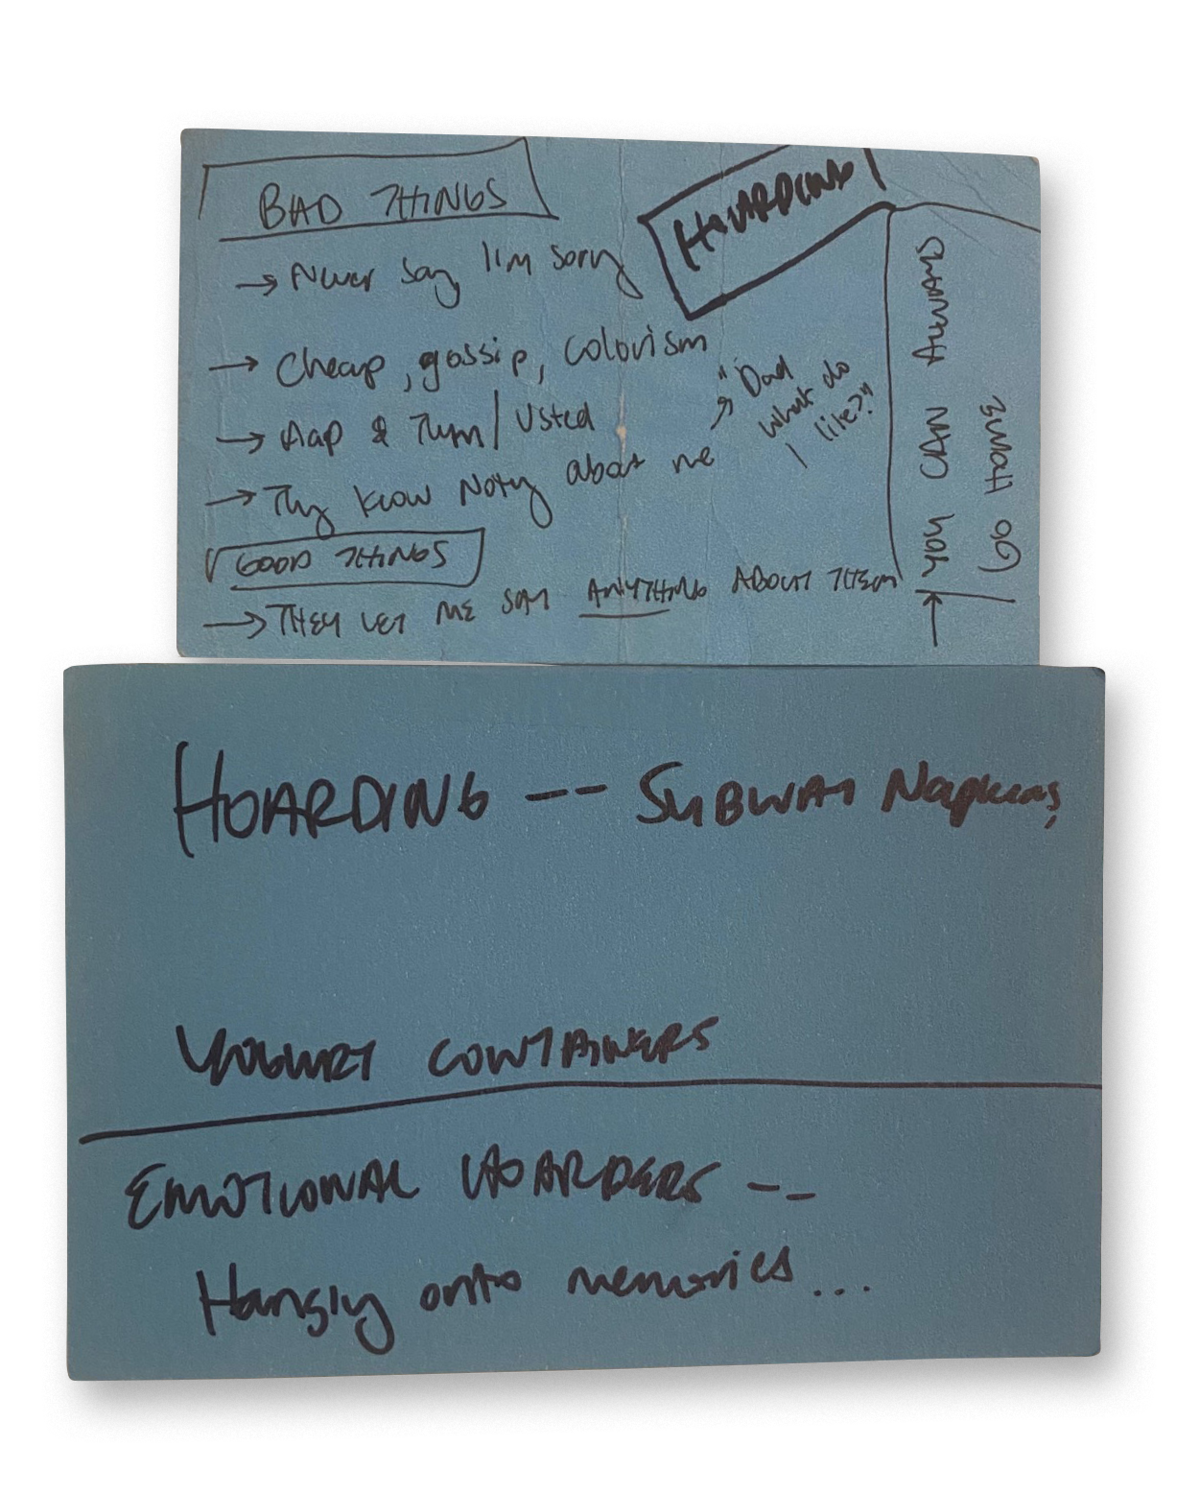 BAD THINGS
HOARDING
→ Never say I'm sorry
→ Cheap, gossip, colorism
→ Aap & Tum / Usted
→ They know Notg about me
→ "Dad
What do
I like?"
GOOD THINGS
→ THEY LET ME SAY ANYTHING ABOUT THEM
→ YOU CAN ALWAYS
GO HOME
HOARDING -- SUBWAY Napkins,
YOGURT CONTAINERS
EMOTIONAL HOARDERS --
Hangig onto memories...